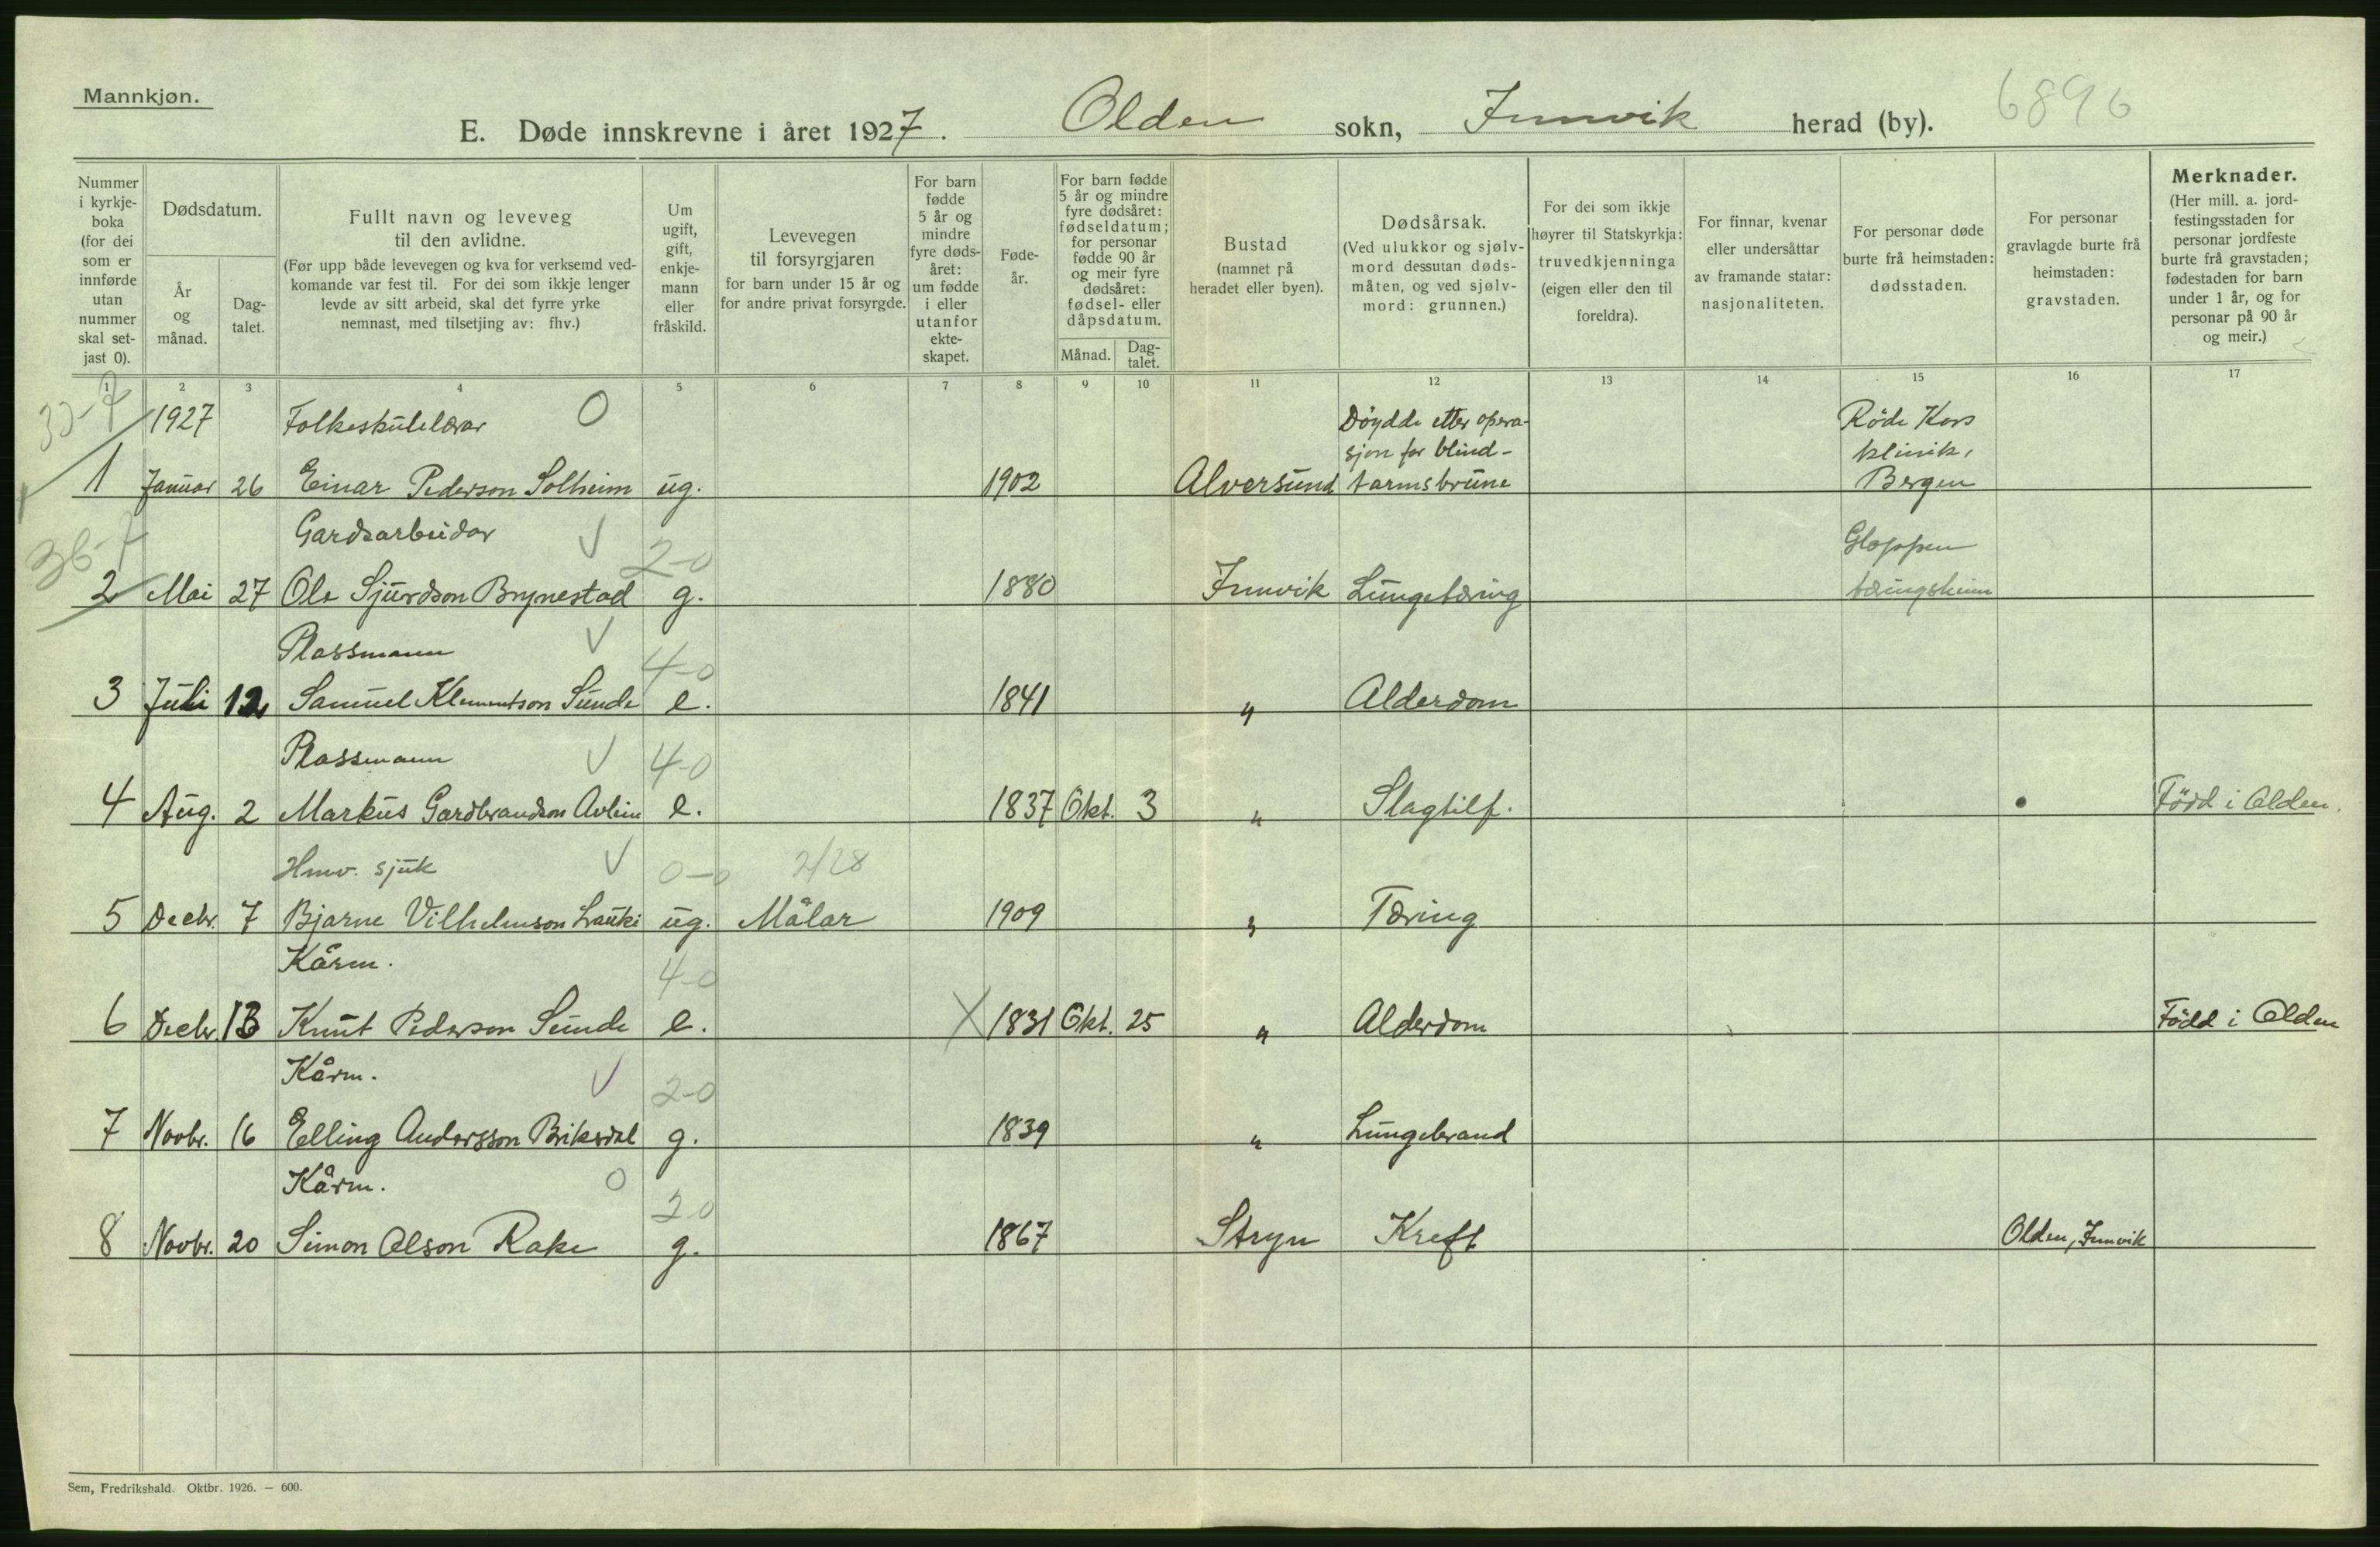 Mannkjøn.
6896
E. Døde innskrevne i året 1927. Olden sokn, Innvik herad (by).
Nummer i kyrkje-boka (for dei som er innførde utan nummer skal set-jast 0).
Dødsdatum.
År og månad.
Dag-talet.
Fullt navn og leveveg til den avlidne.
(Før upp både levevegen og kva for verksemd ved-komande var fest til. For dei som ikkje lenger levde av sitt arbeid, skal det fyrre yrke nemnast, med tilsetjing av: fhv.)
Um ugift, gift, enkje-mann eller fråskild.
Levevegen til forsyrgjaren for barn under 15 år og for andre privat forsyrgde.
For barn fødde 5 år og mindre fyre døds-året: um fødde i eller utanfor ekte-skapet.
Føde-år.
For barn fødde 5 år og mindre fyre dødsåret: fødseldatum; for personar fødde 90 år og meir fyre dødsåret: fødsel- eller dåpsdatum.
Månad.
Dag-talet.
Bustad (namnet på heradet eller byen).
Dødsårsak.
(Ved ulukkor og sjølv-mord dessutan døds-måten, og ved sjølv-mord: grunnen.)
For dei som ikkje høyrer til Statskyrkja: truvedkjenninga (eigen eller den til foreldra).
For finnar, kvenar eller undersåttar av framande statar: nasjonaliteten.
For personar døde burte frå heimstaden: dødsstaden.
For personar gravlagde burte frå heimstaden: gravstaden.
Merknader.
(Her mill. a. jord-festingsstaden for personar jordfeste burte frå gravstaden; fødestaden for barn under 1 år, og for personar på 90 år og meir.)
1 2 3 4 5 6 7 8 9 10 11 12 13 14 15 16 17
1927 Folkeskulelærar 0 Döydde etter opera-
sjon for blind- Röde Kors klinik,
1 Januar 26 Einar Pederson Solheim ug. 1902 Alversund tarmsbrune Bergen
Gardsarbeidar 2-0 Gloppen
2 Mai 27 Ola Sjurdson Brynestad g. 1880 Innvik Lungetæring tæringsheim
Plassmann 4-0
3 Juli 12 Samuel Klementson Sunde e. 1841 " Alderdom
Plassmann 4-0
4 Aug. 2 Markus Gardbrandson Avlein e. 1837 Okt. 3 " Slagtilf. Född i Olden.
Hmv. sjuk 0-0 2/28
5 Decbr. 7 Bjarne Vilhelmson Lauki ug. Målar 1909 " Tæring
Kårm. 4-0
6 Decbr. 13 Knut Pederson Sunde e. X 1831 Okt. 25 " Alderdom Född i Olden
Kårm. 2-0
7 Novbr. 16 Elling Andersson Briksdal g. 1839 " Lungebrand
Kårm. 0 2-0
8 Novbr. 20 Simon Olson Rake g. 1867 Stryn Kreft Olden, Innvik
Sem, Fredrikshald. Oktbr. 1926. — 600.